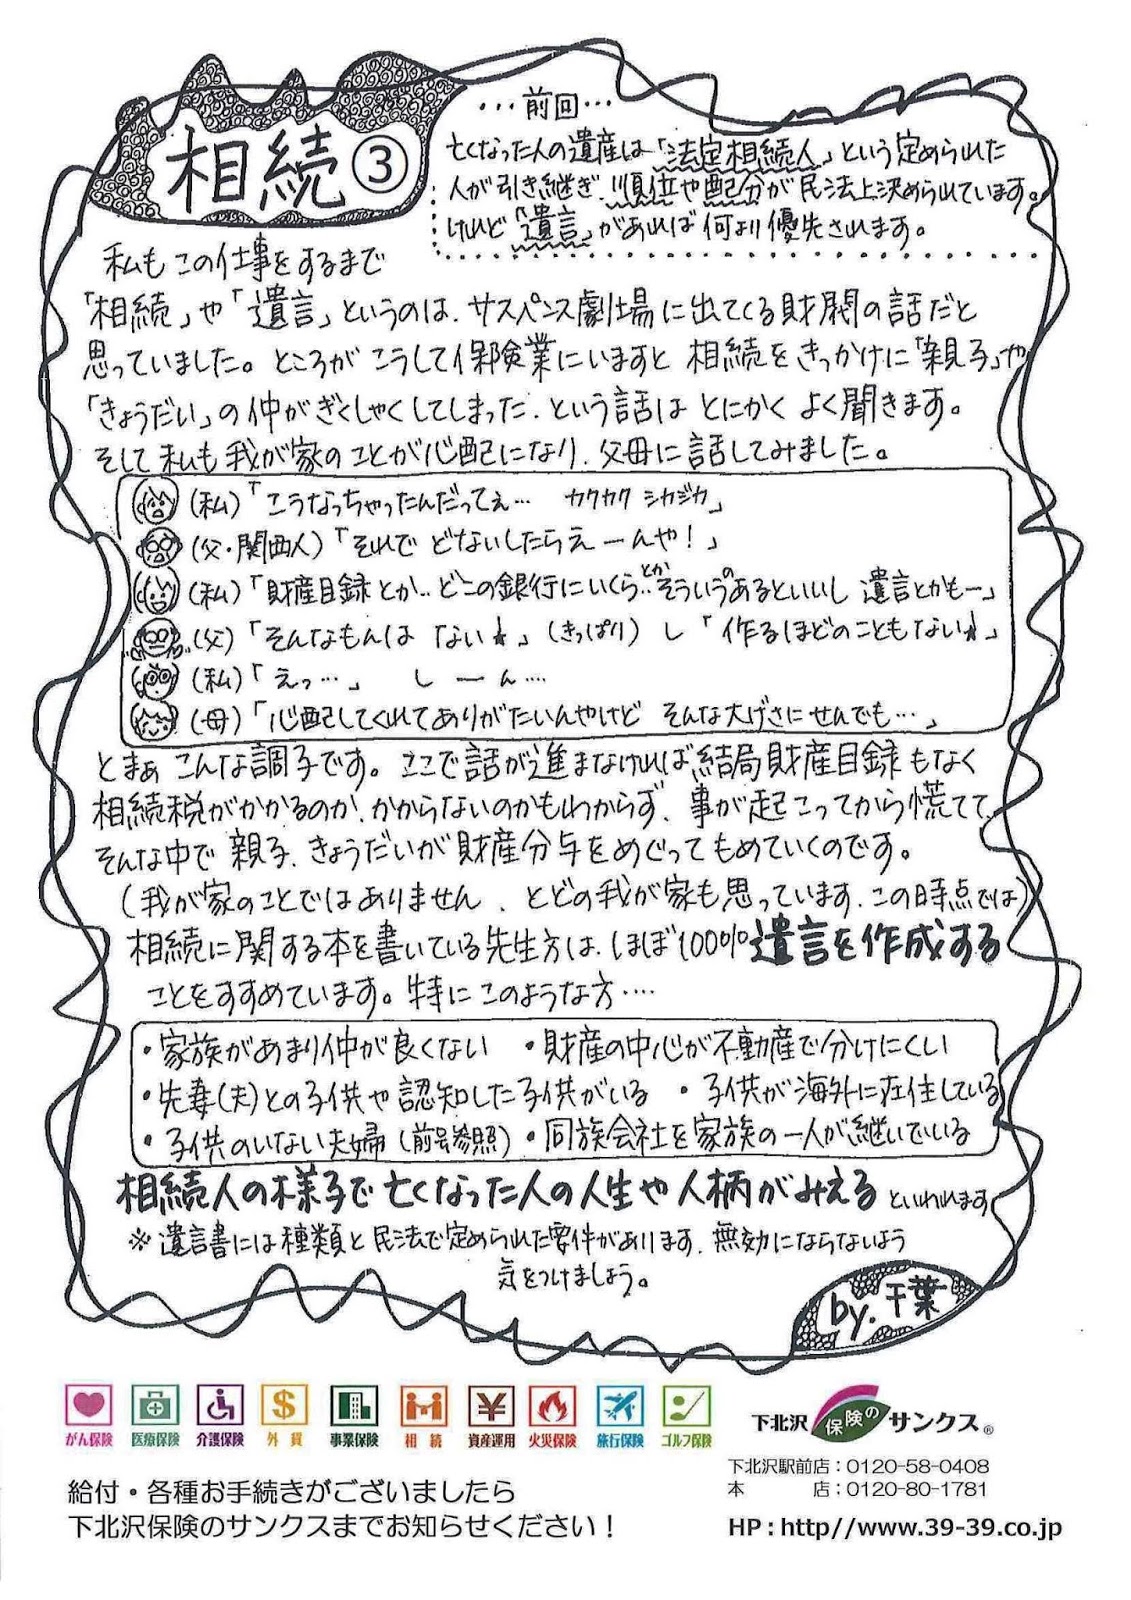 相続③
…前回…
亡くなった人の遺産は「法定相続人」という定められた
人が引き継ぎ、順位や配分が民法上決められています。
けれど「遺言」があれば何より優先されます。
私もこの仕事をするまで
「相続」や「遺言」というのは、サスペンス劇場に出てくる財閥の話だと
思っていました。ところがこうして保険業にいますと相続をきっかけに「親子」や
「きょうだい」の仲がぎくしゃくしてしまった、という話はとにかくよく聞きます。
そして私も我が家のことが心配になり、父母に話してみました。
(私)「こうなっちゃったんだってぇ… カクカク シカジカ」
(父・関西人)「それで どないしたらえーんや!」
(私)「財産目録とか‥どこの銀行にいくら‥とかそういうのあるといいし 遺言とかもー」
(父)「そんなもんは ない★」(きっぱり) し「作るほどのこともない★」
(私)「えっ…」 しーん‥‥
(母)「心配してくれてありがたいんやけど そんな大げさにせんでも…」
とまぁ こんな調子です。ここで話が進まなければ結局財産目録もなく
相続税がかかるのか、かからないのかもわからず、事が起こってから慌てて、
そんな中で親子、きょうだいが財産分与をめぐってもめていくのです。
(我が家のことではありません、とどの我が家も思っています、この時点では)
相続に関する本を書いている先生方は、ほぼ100%遺言を作成する
ことをすすめています。特にこのような方‥‥
・家族があまり仲が良くない ・財産の中心が不動産で分けにくい
・先妻(夫)との子供や認知した子供がいる ・子供が海外に在住している
・子供のいない夫婦(前号参照) ・同族会社を家族の一人が継いでいる
相続人の様子で亡くなった人の人生や人柄がみえるといわれます
※遺言書には種類と民法で定められた要件があります、無効にならないよう
気をつけましょう。
by.千葉
がん保険 医療保険 介護保険 外貨 事業保険 相続 資産運用 火災保険 旅行保険 ゴルフ保険
下北沢保険のサンクス®
給付・各種お手続きがございましたら
下北沢保険のサンクスまでお知らせください!
下北沢駅前店:0120-58-0408
本 店:0120-80-1781
HP:http//www.39-39.co.jp